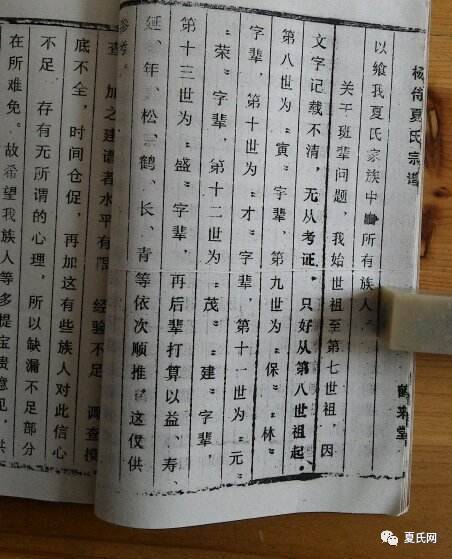 杨侍夏氏宗谱
鹤来堂
以飨我夏氏家族中 所有族人
关于班辈问题，我始世祖至第七世祖，因
文字记载不清，无从考证，只好从第八世祖起。
第八世为“寅”字辈，第九世为“保”“林”
字辈，第十世为“才”字辈，第十一世为“元”
“荣”字辈，第十二世为“茂”“建”字辈，
第十三世为“盛”字辈，再后辈打算以益、寿、
延、年、松、鹤、长、青等依次顺推，这仅供
参考。
加之建谱者水平有限 经验不足 调查摸
底不全，时间仓促，再加这有些族人对此信心
不足 存有无所谓的心理，所以缺漏不足部分
在所难免。故希望我族人等多提宝贵意见，供
夏氏网